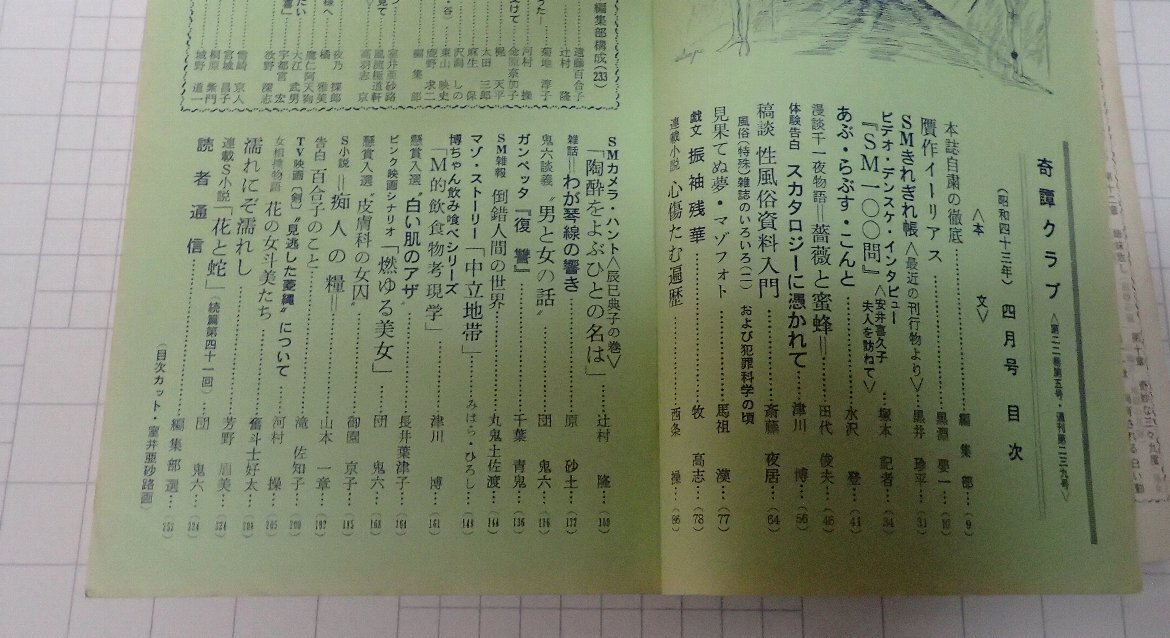 奇譚クラブ 〈第二二巻第五号・通刊第二三九号〉
（昭和四十三年）四月号 目次
〈本文〉
本誌自粛の徹底……編集部…（9）
贋作イーリアス……黒淵嬰一…（10）
SMきれぎれ帳〈最近の刊行物より〉……黒井珍平…（31）
ビデオ・デンスケ・インタビュー
『SM一〇〇問』〈安井喜久子夫人を訪ねて〉……塚本記者…（34）
あぶ・らぶす・こんと……水沢登…（41）
漫談千一夜物語＝薔薇と蜜蜂＝……田代俊夫…（46）
体験告白 スカタロジーに憑かれて……津川博…（56）
稿談 性風俗資料入門……斎藤夜居…（64）
風俗（特殊）雑誌のいろいろ（二） および犯罪科学の頃
見果てぬ夢・マゾフォト……馬祖漢…（77）
戯文 振袖残華……牧高志…（78）
連載小説 心傷たむ遍歴……西条操…（86）
SMカメラ・ハント〈辰巳典子の巻〉
「陶酔をよぶひとの名は」……辻村隆…
雑話＝わが琴線の響き……原砂土…（122）
鬼六談義〝男と女の話〟……団鬼六…（126）
ガンベッタ『復讐』……千葉青鬼…（136）
SM雑報 倒錯人間の世界……丸鬼土佐渡…（144）
マゾ・ストーリー「中立地帯」……みはら・ひろし…（148）
博ちゃん飲み喰べシリーズ
「M的飲食物考現学」……津川博…（161）
懸賞入選〝白い肌のアザ〟……長井葉津子…（164）
ピンク映画シナリオ「燃ゆる美女」……団鬼六…（168）
懸賞入選〝皮膚科の女囚〟……御園京子…（185）
S小説＝痴人の糧＝……山本一章…（192）
告白 百合子のこと……滝佐知子…（200）
TV映画〔剣〕〝見逃した菱縄〟について……河村操…（205）
女相撲物語 花の女斗美たち……奮斗士好太…（208）
濡れにぞ濡れし……芳野眉美…（224）
連載S小説「花と蛇」（続篇第四十一回）……団鬼六…（234）
読者通信……編集部選…（257）
（目次カット・室井亜砂路画）
編集部構成（233）
遠藤百合子
辻村隆
菊地淳子
河村操
金原奈加子
梶天平
太田三郎
沢潟しの
麻生保
東山映史
鹿野求二
編集部
室井亜砂路
風流極道軒
高羽志京
夜乃探郎
橘雅美
魔仁阿天狗
大江武男
宇都宮宏
牧野深志
雪崎京人
宮城昌子
桐原紫門
城野道一